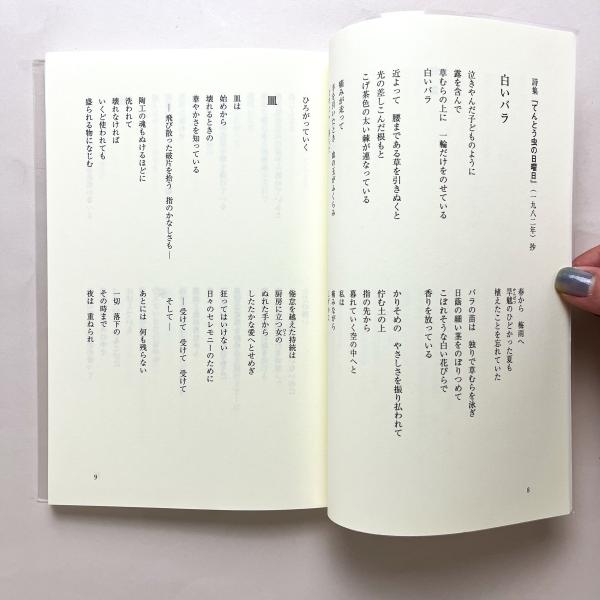 詩集『てんとう虫の日曜日』(一九八二年) 抄
白いバラ
泣きやんだ子どものように
露を含んで
草むらの上に 一輪だけをのせている
白いバラ
近よって 腰まである草を引きぬくと
光の差しこんだ根もと
こげ茶色の太い棘が連なっている
痛みが走って
春から 梅雨へ
早魃のひどかった夏も
かんばつ
植えたことを忘れていた
バラの苗は 独りで草むらを泳ぎ
日蔭の細い茎をのぼりつめて
こぼれそうな白い花びらで
香りを放っている
かりそめの やさしさを振り払われて
佇む土の上
指の先から
暮れていく空の中へと
私は
痛みながら
8
ひろがっていく
皿
皿は
始めから
壊れるときの
華やかさを知っている
―飛び散った破片を拾う 指のかなしさも―
陶工の魂もぬけるほどに
洗われて
壊れなければ
いくど使われても
盛られる物になじむ
倦怠を越えた持続は
厨房に立つ女の
ぬれた手から
したたかな愛へとせめぎ
狂ってはいけない
日々のセレモニーのために
―受けて 受けて 受けて
そして―
あとには 何も残らない
一切 落下の
その時まで
夜は 重ねられ
9